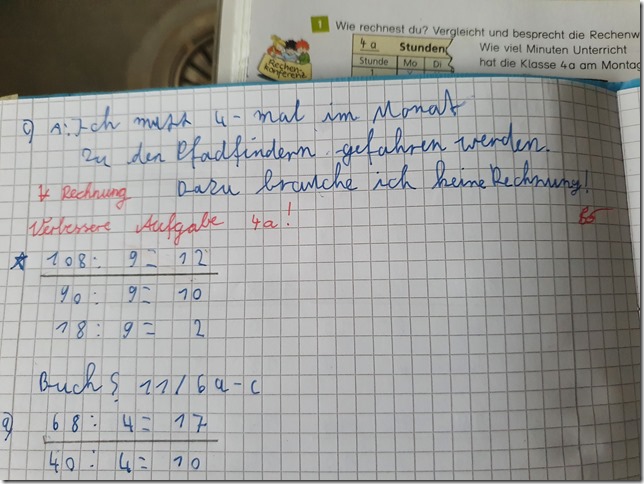 1 Wie rechnest du? Vergleicht und besprecht die Rechenw
4 a Stunden
Wie viel Minuten Unterricht
Stunde Mo Di
hat die Klasse 4a am Montag
Rechen-
konferenz
1
c) A: Ich muss 4-mal im Monat
zu den Pfadfindern gefahren werden.
Rechnung Dazu brauche ich keine Rechnung!
Verbessere Aufgabe 4a!
108 : 9 = 12
90 : 9 = 10
18 : 9 = 2
Buch S 11 / 6 a-c
a) 68 : 4 = 17
40 : 4 = 10